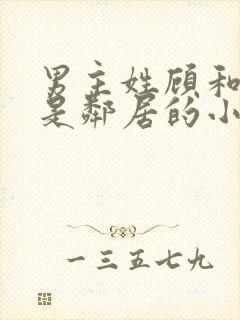 男主姓顾和
是鄰居的小
一三五七九